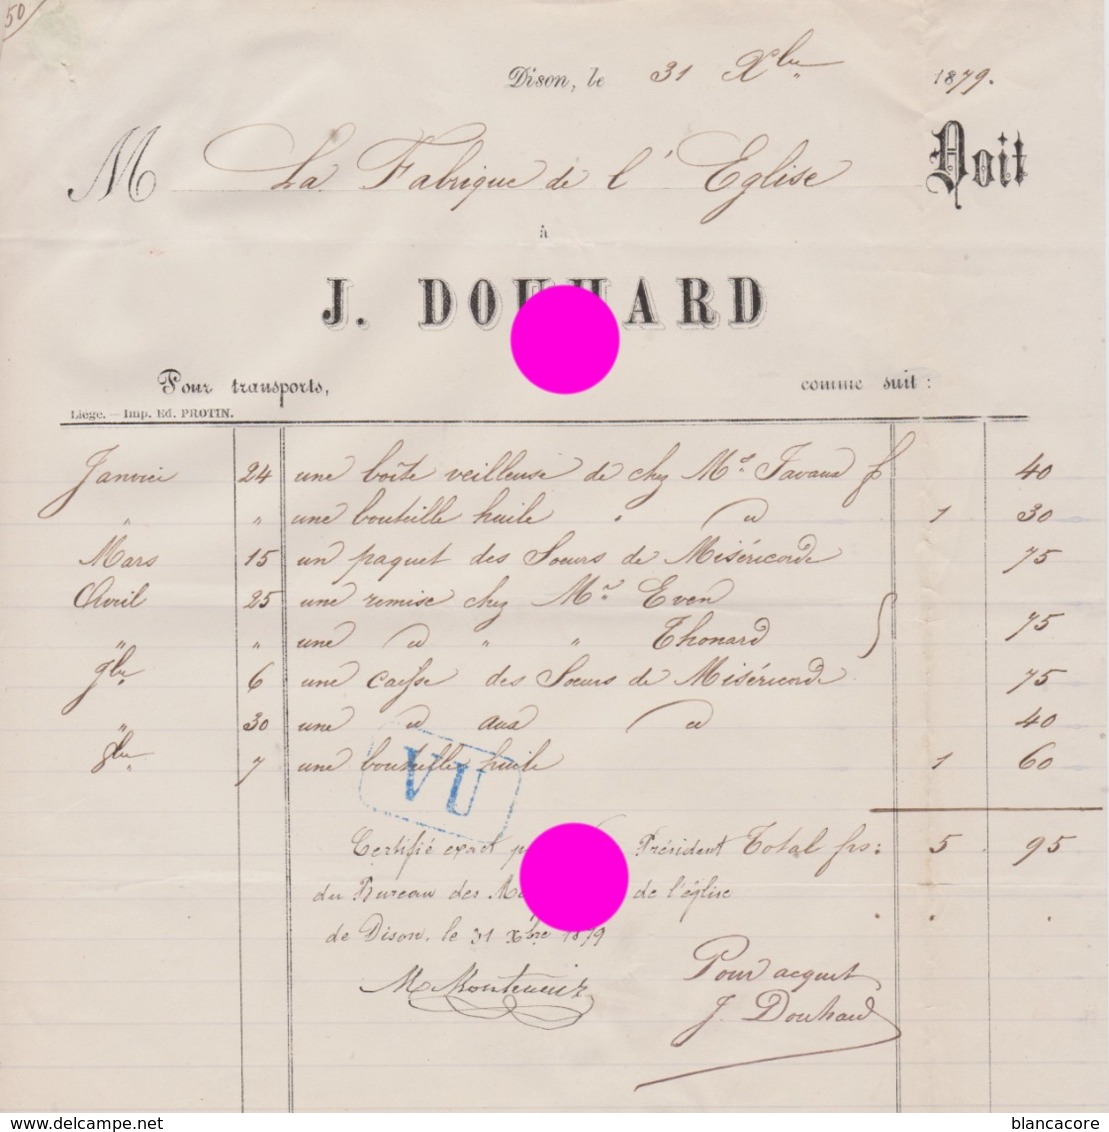 50
Dison, le 31 Xbre 1879.
M La Fabrique de l'Eglise Doit
à
J. DOUHARD
Pour transports, comme suit :
Liège. — Imp. Ed. PROTIN.
Janvier 24 une boîte veilleuse de chez Mr Javaux f 40
" " une bouteille huile " d 1 30
Mars 15 un paquet des Sœurs de Miséricorde 75
Avril 25 une remise chez Mr Even
" " une d " " Thonard 75
9bre 6 une caisse des Sœurs de Miséricorde 75
" 30 une d aux d 40
7 une bouteille huile 1 60
VU
Total frs: 5 95
Certifié exact Président
du Bureau des de l'église
de Dison, le 31 Xbre 1879
Pour acquit
J. Douhard
blancacore